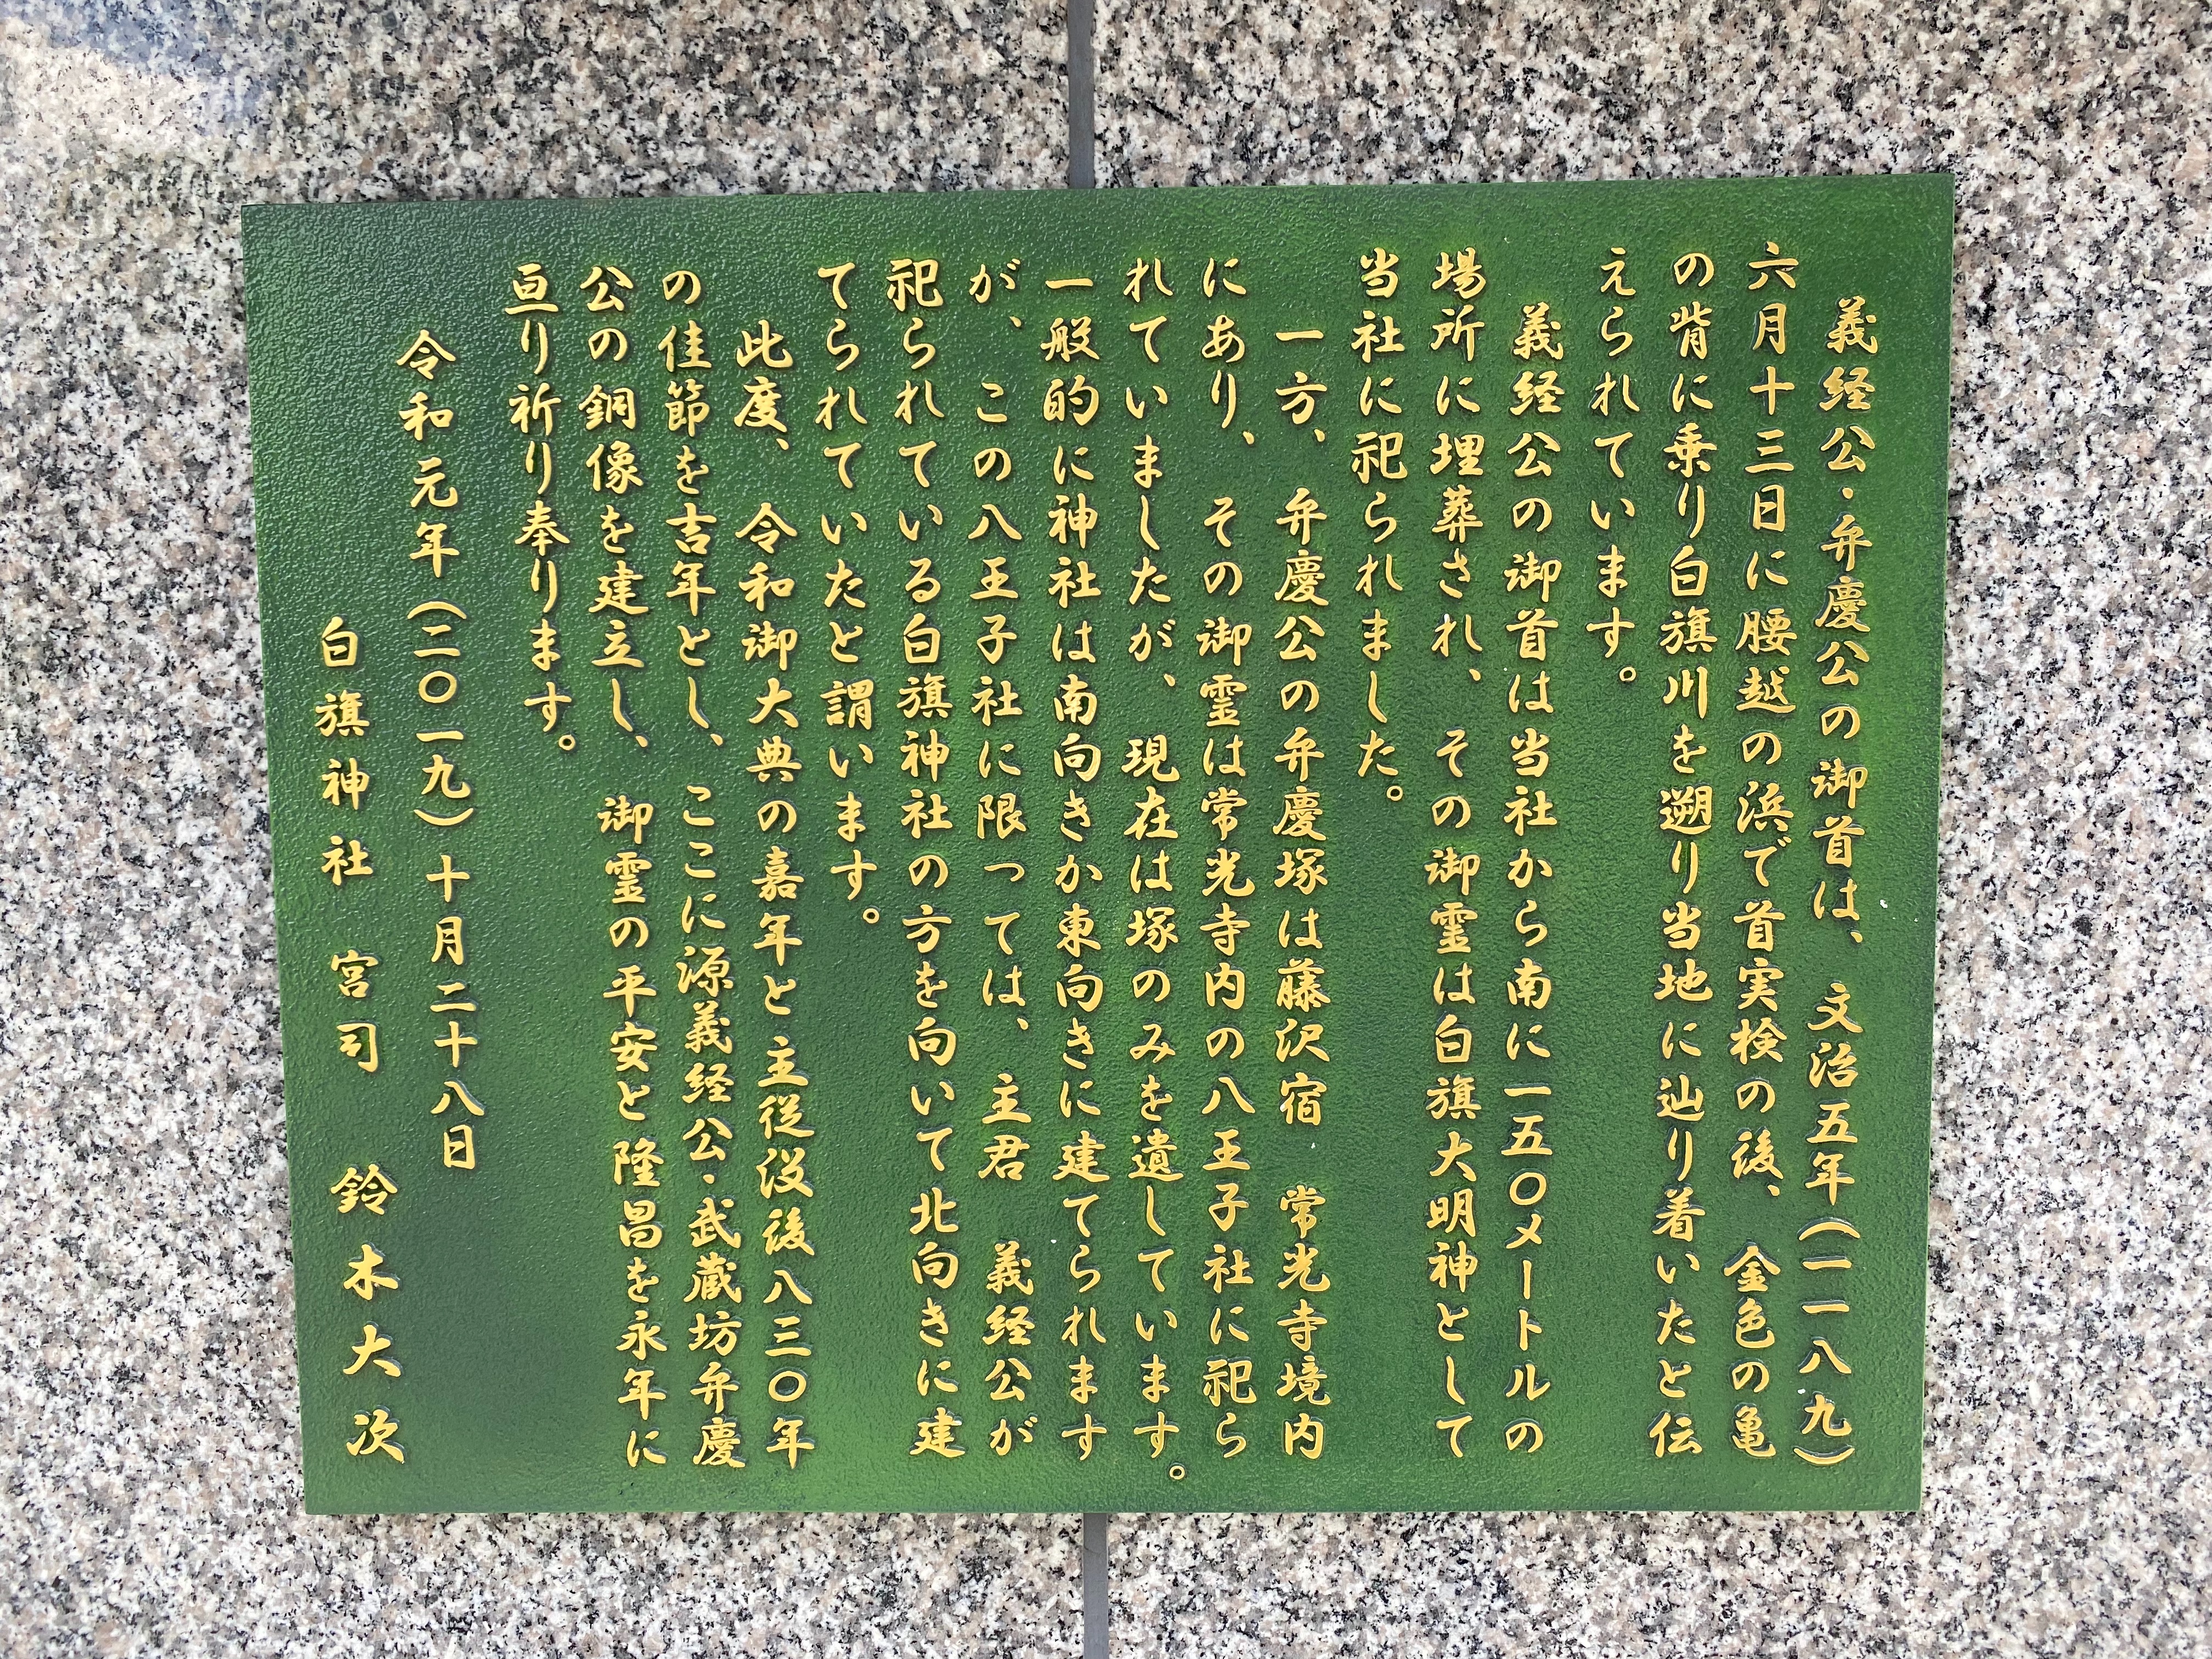 義経公・弁慶公の御首は、文治五年（一一八九）
六月十三日に腰越の浜で首実検の後、金色の亀
の背に乗り白旗川を遡り当地に辿り着いたと伝
えられています。
義経公の御首は当社から南に一五〇メートルの
場所に埋葬され、その御霊は白旗大明神として
当社に祀られました。
一方、弁慶公の弁慶塚は藤沢宿　常光寺境内
にあり、その御霊は常光寺内の八王子社に祀ら
れていましたが、現在は塚のみを遺しています。
一般的に神社は南向きか東向きに建てられます
が、この八王子社に限っては、主君　義経公が
祀られている白旗神社の方を向いて北向きに建
てられていたと謂います。
此度、令和御大典の嘉年と主従没後八三〇年
の佳節を吉年とし、ここに源義経公・武蔵坊弁慶
公の銅像を建立し、御霊の平安と隆昌を永年に
亘り祈り奉ります。
令和元年（二〇一九）十月二十八日
白旗神社　宮司　鈴木大次